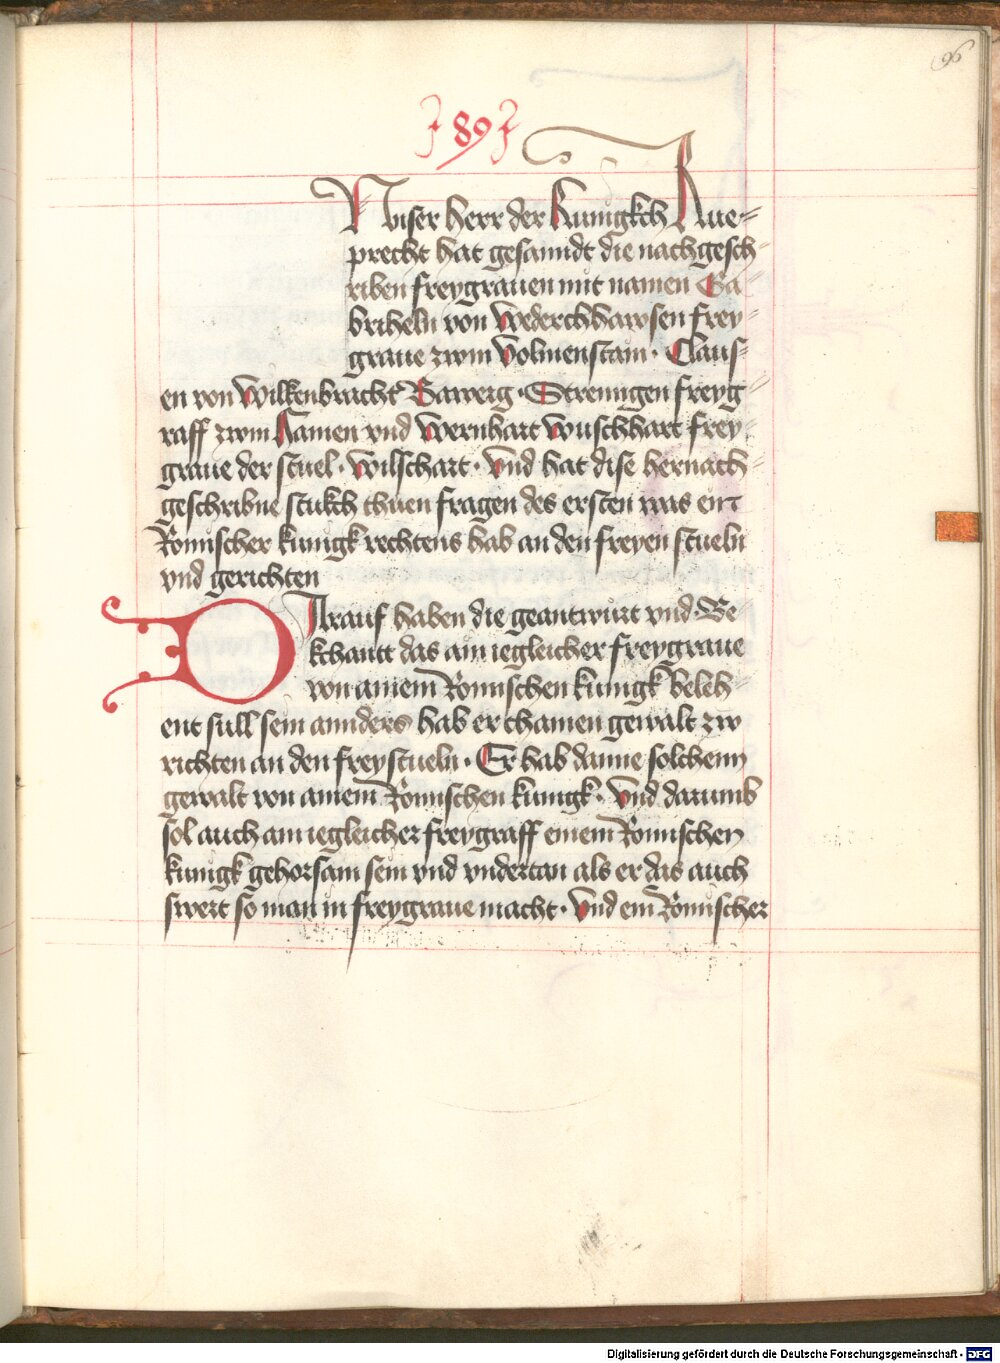 96
89
Nnser herr der kunigkch Rue-
precht hat gesanndt die nachgesch-
riben freygrauen mit namen Ga
briheln von Wederchhawsen frey-
graue zwm Volmenstain. Claus-
en von Wilkenbracht Gawerg. Strenngen freyg-
raff zwm Hamen vnd Wernhart Wuschhart frey-
graue der stuel. Wilschart. Vnd hat dise hernach-
geschribne stukch thuen fragen des ersten was ein
Romischer kunigk rechtens hab an den freyen stueln
vnd gerichten
DArauf haben die geantwürt vnd Be
kchantt das ain iegleicher freygraue
von ainem Romischen kunigk beleh-
ent sull sein annders hab er chainen gewalt zw
richten an den freystueln. Er hab danne solchenn
gewalt von ainem Romischen kunigk. Vnd darumb
sol auch ain iegleicher freygraff einem Romischen
kunigk gehorsam sein vnd vndertan als er das auch
swert so man in freygraue macht. Vnd ein Romischer
Digitalisierung gefördert durch die Deutsche Forschungsgemeinschaft - DFG